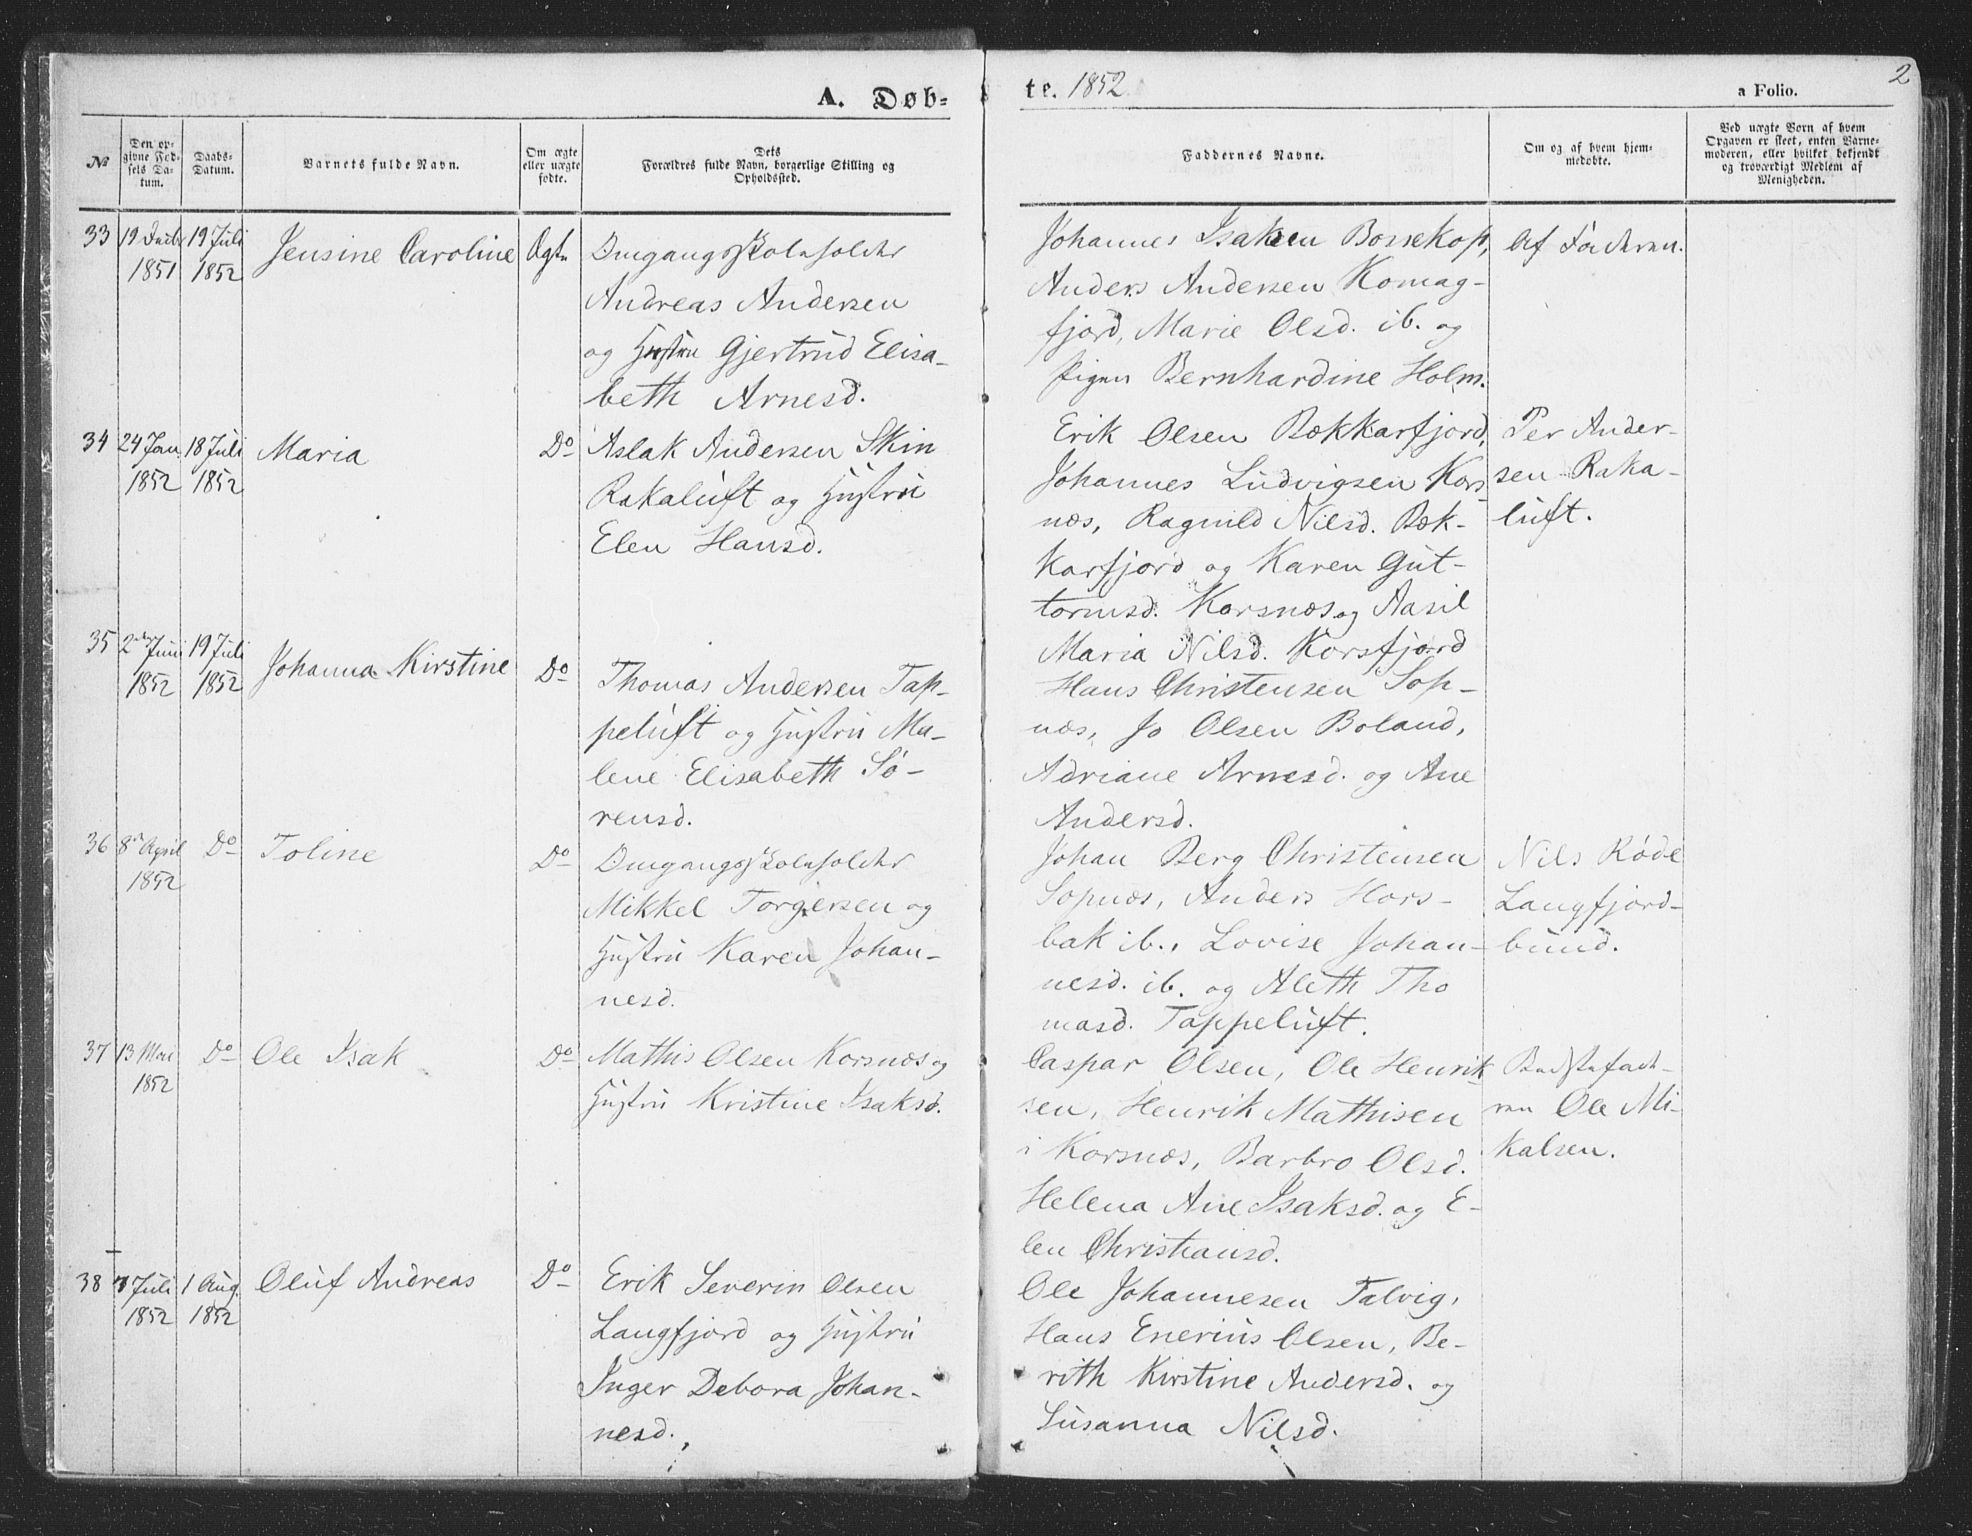 A. Døb-
te. 1852
2
a Folio.
№
Den op-
givne Fød-
sels Da-
tum.
Daabs-
Datum.
Barnets fulde Navn.
Om ægte
eller uægte
fødte.
Dets
Forældres fulde Navn, borgerlige Stilling og
Opholdssted.
Faddernes Navne.
Om og af hvem hjem-
medøbte.
Ved uægte Børn af hvem
Opgaven er skeet, enten Barne-
moderen, eller hvilket bekjendt
og troværdigt Medlem af
Menigheden.
33
19 Decbr
1851
19 Juli
1852
Jensine Caroline
Ægte
Omgangsskoleholder
Andreas Andersen
og Hustru Gjertrud Elisa-
beth Arnesd.
Johannes Isaksen Bossekop,
Anders Andersen Komag-
fjord, Marie Olsd. ib. og
Pigen Bernhardine Holm.
Af Faderen.
34
24 Jan
1852
18 Juli
1852
Maria
Do
Aslak Andersen Skin
Rakaluft og Hustru
Elen Hansd.
Erik Olsen Bækkarfjord,
Johannes Ludvigsen Kors
næs, Ragnild Nilsd. Bæk-
karfjord og Karen Gut-
tormsd. Korsnæs og Aasil
Maria Nilsd. Korsfjord
Per Ander-
sen Raka-
luft.
35
2den Juni
1852
19 Juli
1852
Johanna Kirstine
Do
Thomas Andersen Tap-
peluft og Hustru Ma-
lene Elisabeth Sø-
rensd.
Hans Christensen Sop-
næs, Jo Olsen Boland,
Adriane Arnesd. og Ane
Andersd.
36
8de April
1852
Do
Toline
Do
Omgangsskoleholder
Mikkel Torgersen og
Hustru Karen Johan-
nesd.
Johan Berg Christensen
Sopnæs, Anders Hors-
bak ib., Lovise Johan-
nesd. ib. og Aleth Tho
masd. Tappeluft.
Nils Røde
Langfjord-
bund.
37
13 Mai
1852
Do
Ole Isak
Do
Mathis Olsen Korsnæs og
Hustru Kristine Isaksd.
Caspar Olsen, Ole Henrik-
sen, Henrik Mathisen
i Korsnæs, Barbro Olsd.
Helena Ane Isaksd. og E-
len Christiansd.
Ole Mi-
kalsen.
38
7 Juli
1852
1 Aug.
1852
Oluf Andreas
Do
Erik Severin Olsen
Langfjord og Hustru
Inger Debora Johan-
nesd.
Ole Johannesen Talvig,
Hans Enerius Olsen, Be-
rith Kirstine Andersd. og
Susanna Nilsd.